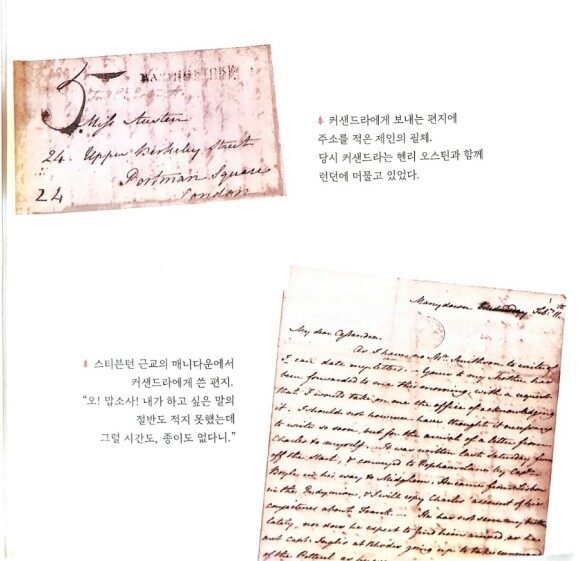 5
Miss Austen
24. Upper Berkeley Street
Portman Square
London
커샌드라에게 보내는 편지에
주소를 적은 제인의 필체.
당시 커샌드라는 헨리 오스틴과 함께
런던에 머물고 있었다.
스티븐턴 근교의 매니다운에서
커샌드라에게 쓴 편지.
“오! 맙소사! 내가 하고 싶은 말의
절반도 적지 못했는데
그럴 시간도, 종이도 없다니.”
Manydown Feb: 11th
My dear Cassandra,
As I have no Mr. Smithson to write of
I can date my letters.— Yours to my Mother has
been forwarded to me this morning, with a request
that I would take on me the office of acknowledging
it. I should not however have thought it necessary
to write so soon, but for the arrival of a letter from
Charles to myself.— It was written last Saturday from
off the Start, & conveyed to Popham Lane by Capt:
Boyle in his way to Midgham. He came from Lisbon
in the Endymion, & I will copy Charles' account of his
conjectures about Frank.— He has not seen my brother
lately, nor does he expect to find him arrived, as he
met Capt: Inglis at Rhodes going up to take command
of the Petterel as he